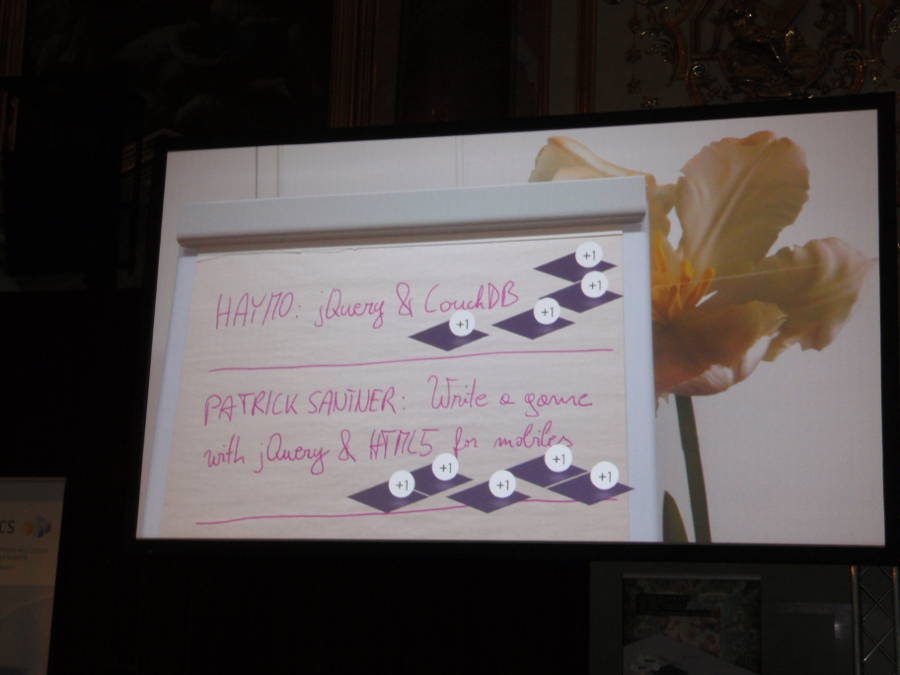 HAYMO: jQuery & CouchDB
+1
+1
+1
+1
PATRICK SANTNER: Write a game
with jQuery & HTML5 for mobiles
+1
+1
+1
+1
+1
CS